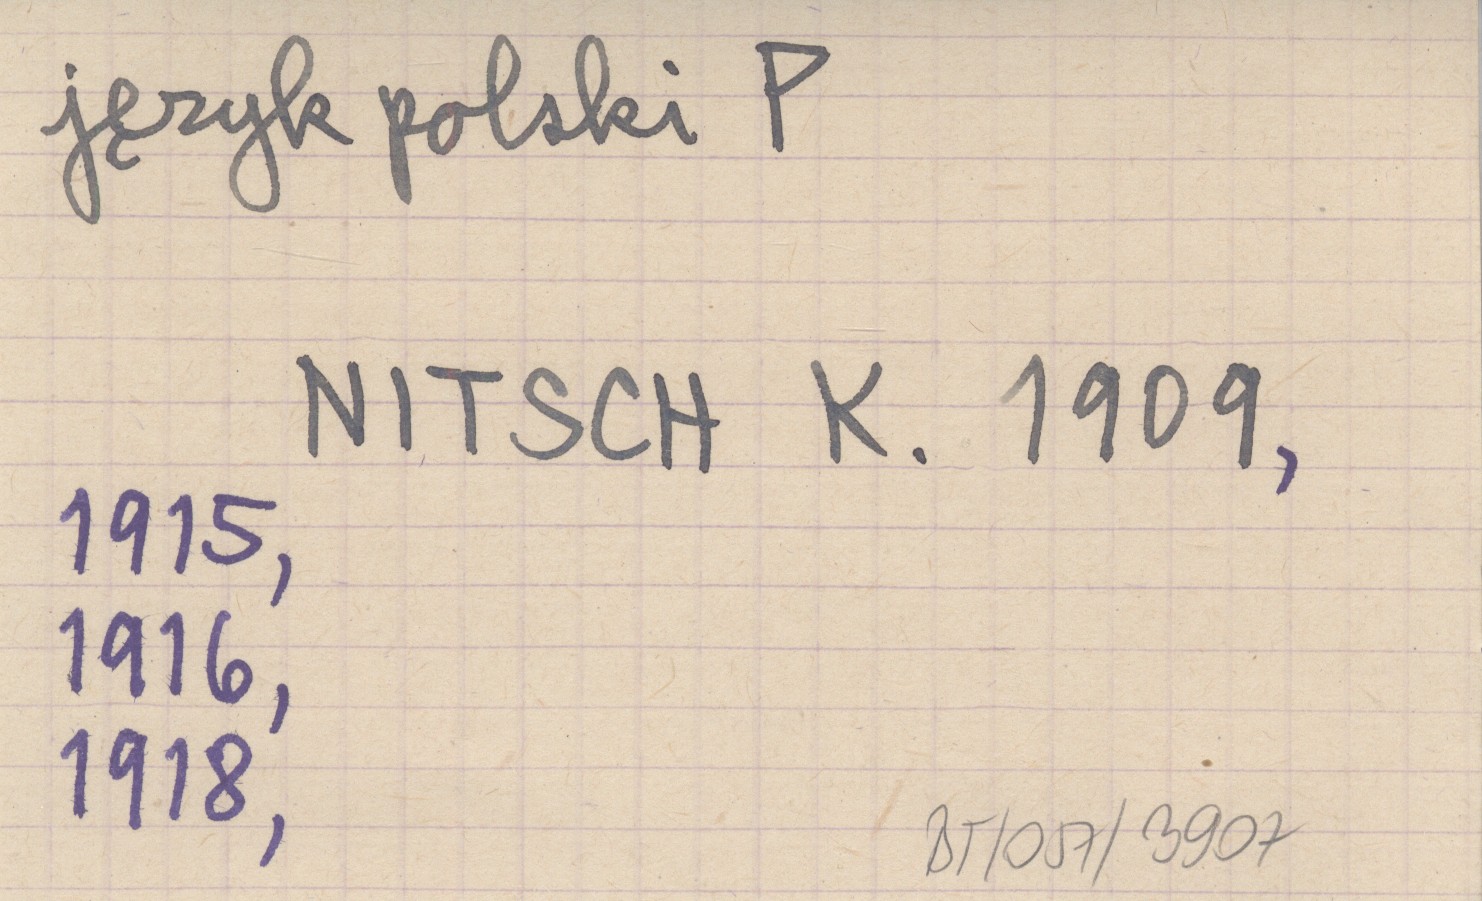 język polski P
NITSCH K. 1909,
1915,
1916,
1918,
BT/057/3907